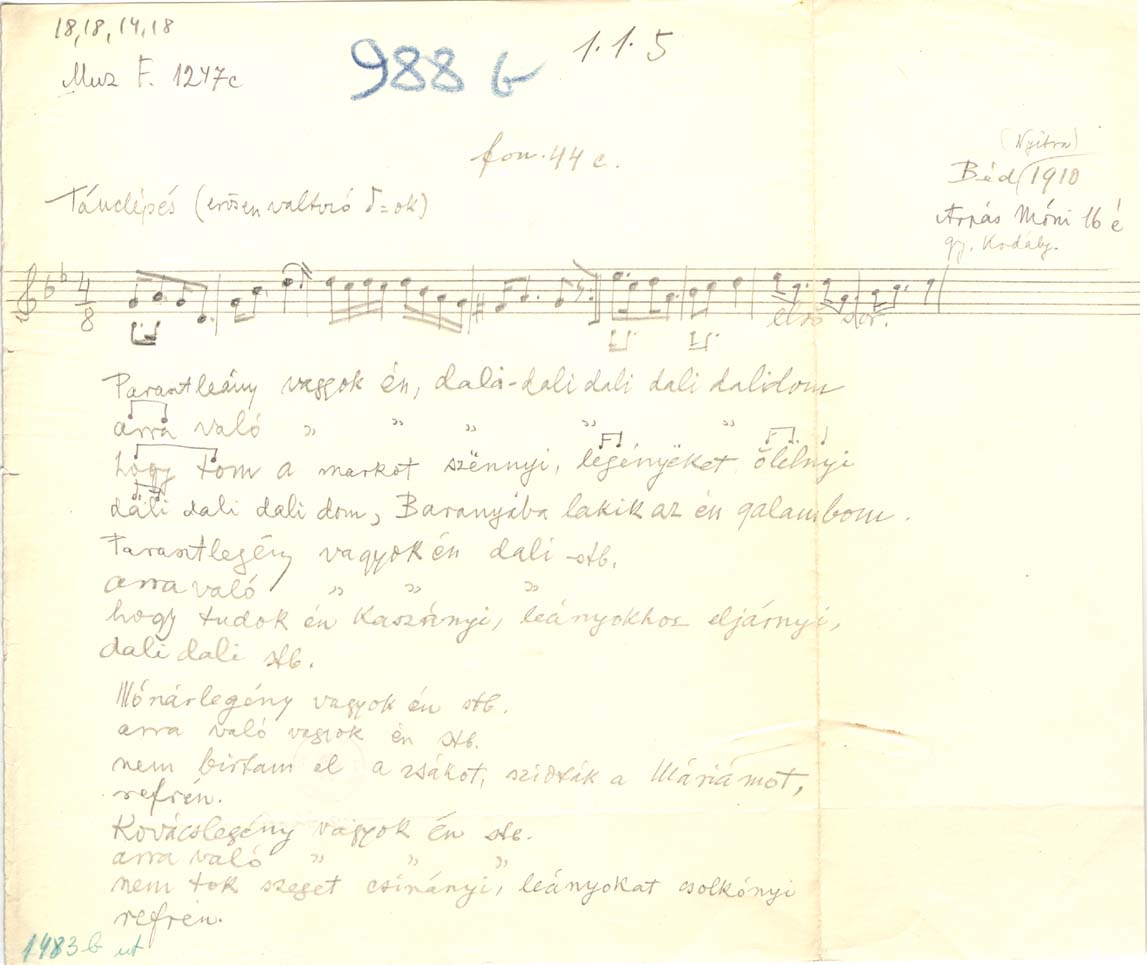 18,18,14,18
Muz F. 1247c
988 b
1.1.5
fon. 44 c.
(Nyitra)
Béd 1910
Árpás Móni 16 é
gy. Kodály.
Tánclépés (erősen váltózó = ok)
4/8
első sor.
Parasztleány vagyok én, dali-dali dali dali dalidom
arra való " " " " "
hogy tom a markot szënnyi, legényëket ölelnyi
dali dali dali dom, Baranyába lakik az én galambom.
Parasztlegény vagyok én dali stb.
arra való " " "
hogy tudok én kaszányi, leányokhoz eljárnyi,
dali dali stb.
Mónárlegény vagyok én stb.
arra való vagyok én stb.
nem birtam el a zsákot, szidták a Máriámot,
refrén.
Kovácslegény vagyok én stb.
arra való " " "
nem tok szeget csinányi, leányokat csolkónyi
refrén.
1483 b ut